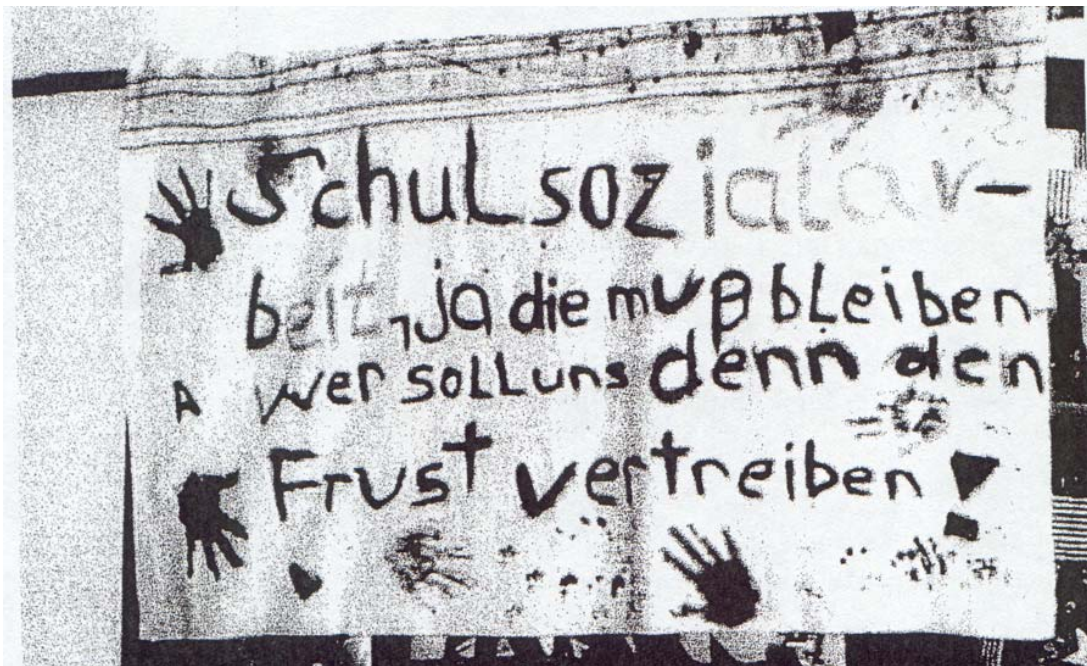 Schulsozialar-
beit, ja die muß bleiben
wer soll uns denn den
Frust vertreiben!